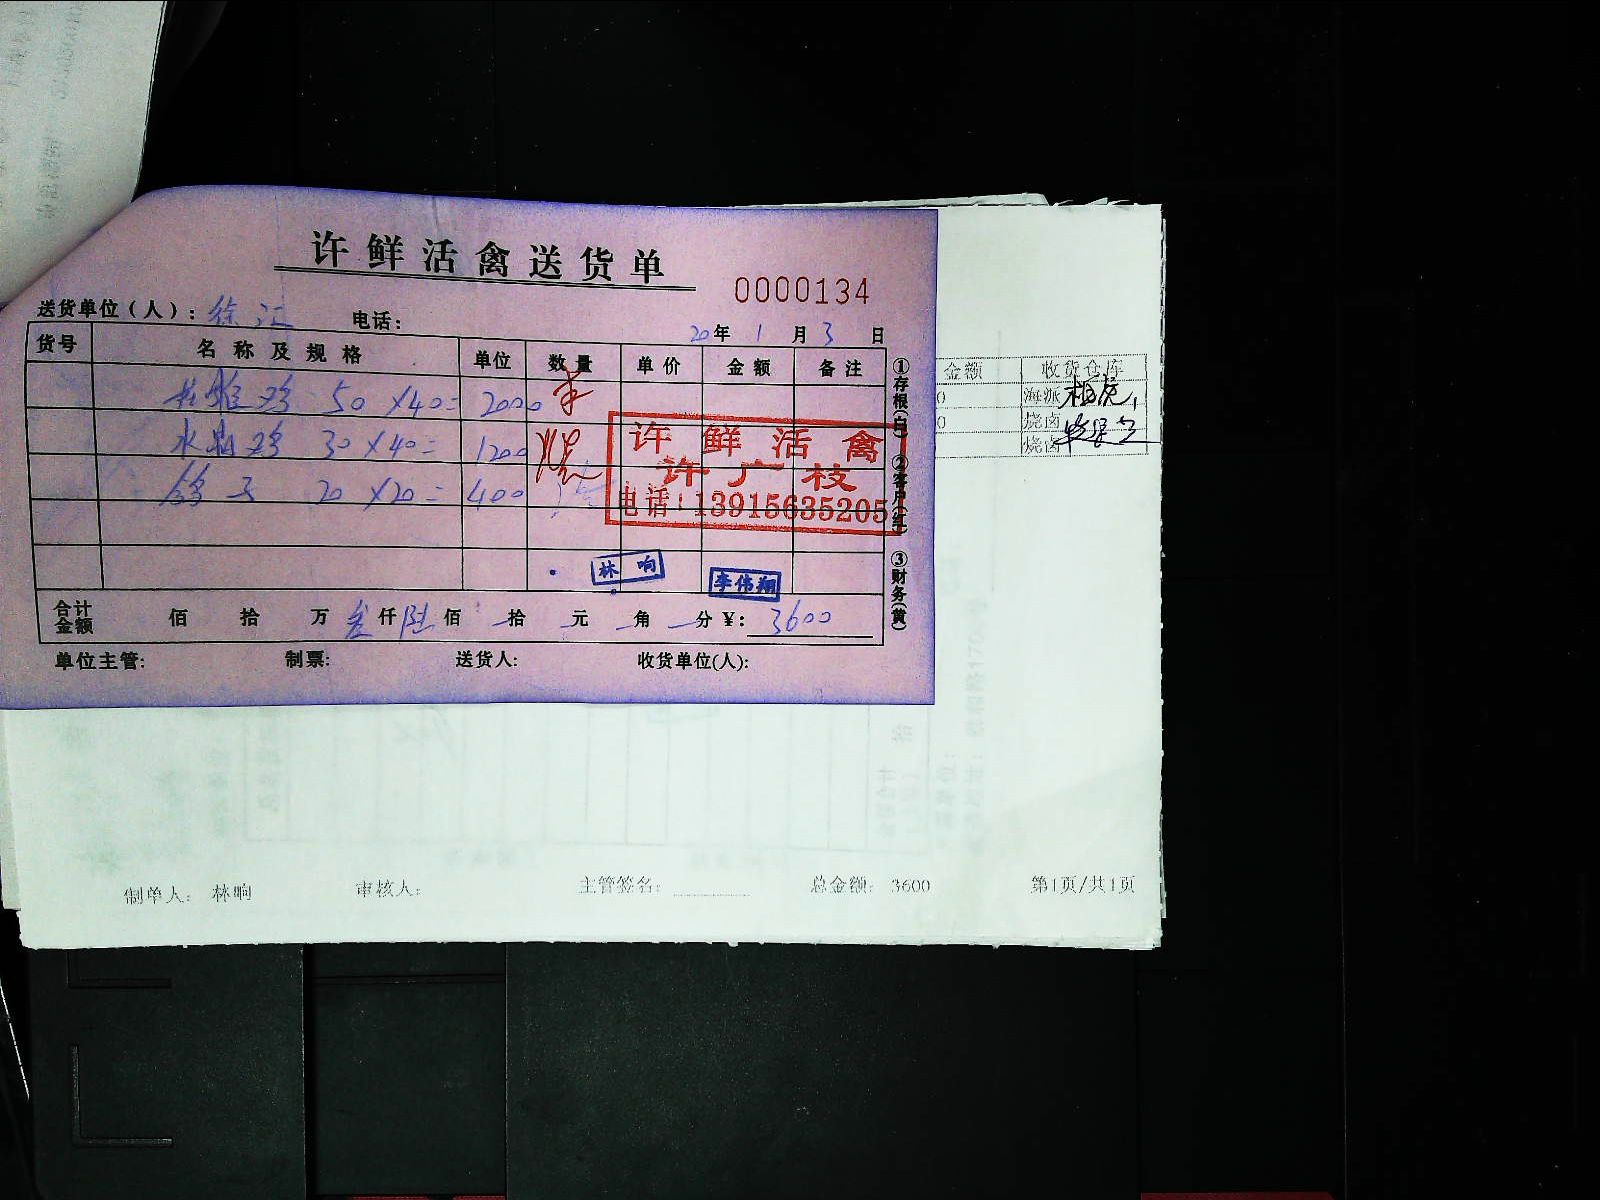 许鲜活禽送货单
0000134
送货单位(人): 徐汇 电话:
20年 1月 3日
货号 名称及规格 单位 数量 单价 金额 备注
鸡 50 × 40 = 2000
水 鸡 30 × 40 = 1200
鸽子 20 × 20 = 400
许鲜活禽
许广枝
电话:13915635205
林响
李伟翔
合计金额 佰 拾 万 叁仟 陆佰 拾 元 角 分 ¥: 3600
单位主管: 制票: 送货人: 收货单位(人):
①存根(白) ②客户(红) ③财务(黄)
金额 收货仓库
0 海派
0 烧卤
烧卤
制单人: 林响 审核人: 主管签名: 总金额: 3600 第1页/共1页